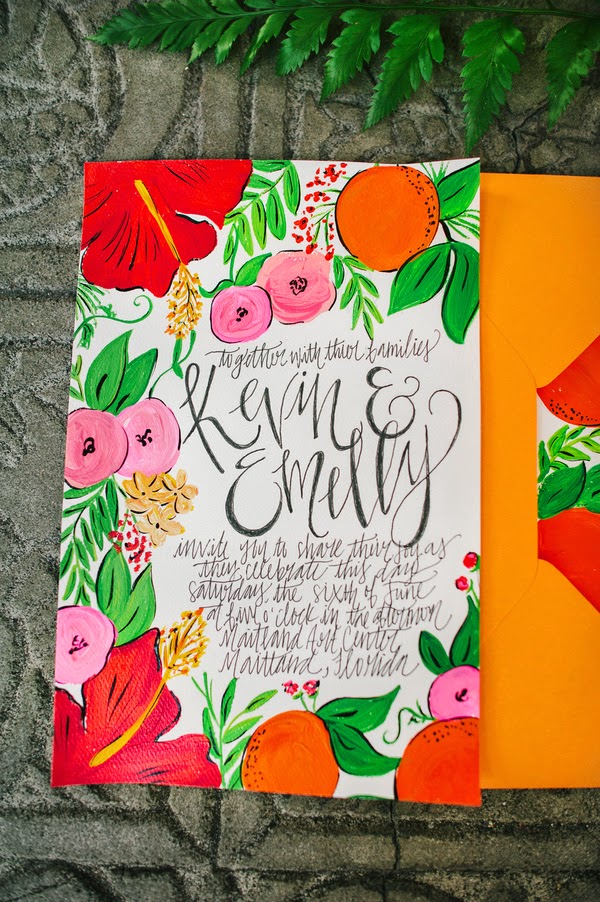 together with thier families
Kevin &
Emelly
invite you to share their joy as
they celebrate this day
saturday, the sixth of June
at five o'clock in the afternoon
Maitland Art Center
Maitland, Florida